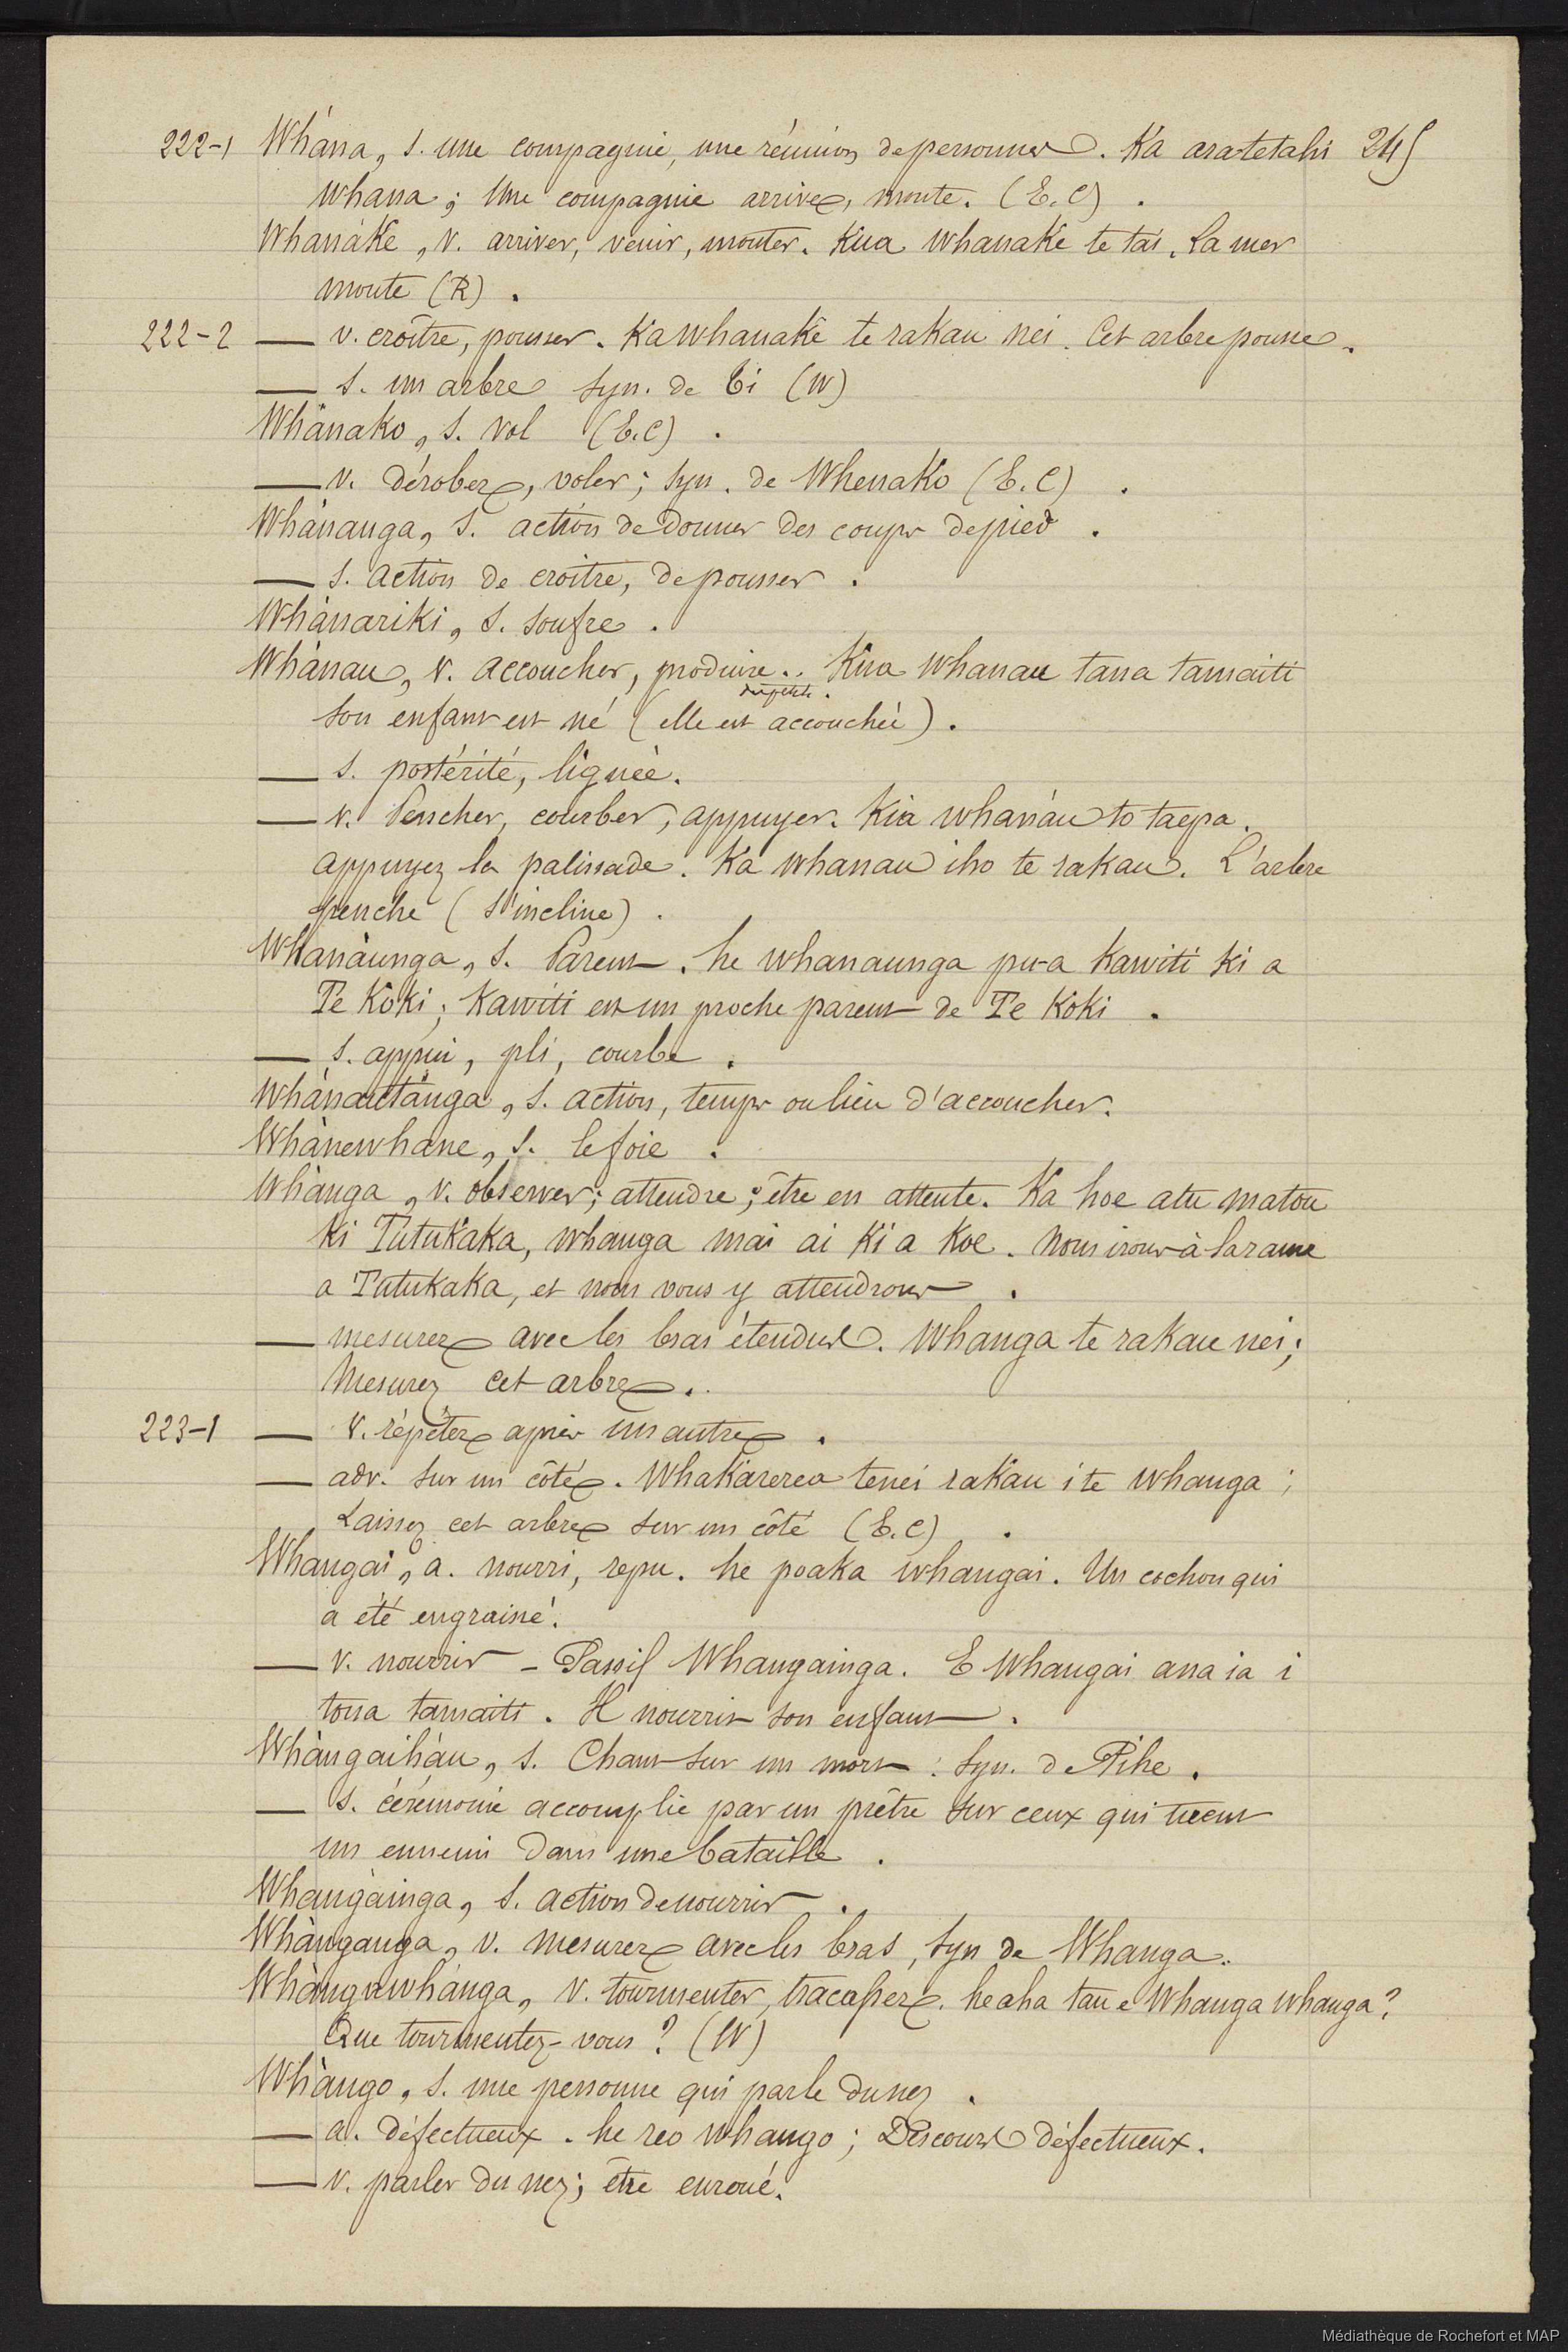 222-1 Whána, s. une compagnie, une réunion de personnes. Ka ara te tahi 245
whana; Une compagnie arrive, monte. (E.C) .
Whanáke, v. arriver, venir, monter. Kua whanake te tai. La mer
monte (R) .
222-2 — v. croître, pousser. Ka whanake te rakau nei. Cet arbre pousse.
— s. un arbre syn. de Ti (W)
Whánako, s. vol (E.C) .
— v. dérober, voler; syn. de Whenako (E.C) .
Whánanga, s. action de donner des coups de pied .
— s. action de croitre, de pousser .
Whànariki, s. soufre .
Whànau, v. accoucher, produire.. Kua whanau tana tamaiti
son enfant est né (elle est accouchée) .
— s. postérité, lignée.
— v. Pencher, courber, appuyer. Kia whanáu to taepa.
appuyez la palissade. Ka whanau iho te rakau. L'arbre
penche (s'incline) .
Whanàunga, s. Parent. he whanaunga pu-a Kawiti ki a
Te Koki; Kawiti est un proche parent de Te Koki .
— s. appui, pli, courbe .
Whànautánga, s. action, temps ou lieu d'accoucher.
Whànewhane, s. le foie .
Whànga, v. observer; attendre; être en attente. Ka hoe atu matou
ki Tutukaka, whanga mai ai ki a koe. Nous irons à la rame
a Tutukaka, et nous vous y attendrons .
— mesurer avec les bras étendus. Whanga te rakau nei;
Mesurez cet arbre..
223-1 — v. répéter après un autre .
— adv. sur un côté. Whakarerea tenei rakau i te whanga;
Laissez cet arbre sur un côté (E.C) .
Whangai, a. nourri, repu. he poaka whangai. Un cochon qui
a été engrainé.
— v. nourrir - Passif Whangainga. E Whangai ana ia i
tona tamaiti. Il nourrit son enfant .
Whàngaihàu, s. Chant sur un mort: syn. de Pihe.
— s. cérémonie accomplie par un prêtre sur ceux qui tuent
un ennemi dans une bataille .
Whangàinga, s. action de nourrir .
Whànganga, v. mesurer avec les bras, syn de Whanga.
Whàngawhánga, v. tourmenter, tracasser. he aha tau e Whanga whanga?
Que tourmentez-vous? (W)
Whàngo, s. une personne qui parle du nez .
— a. défectueux. he reo whango; Discours défectueux.
— v. parler du nez; être enroué.
Médiathèque de Rochefort et MAP